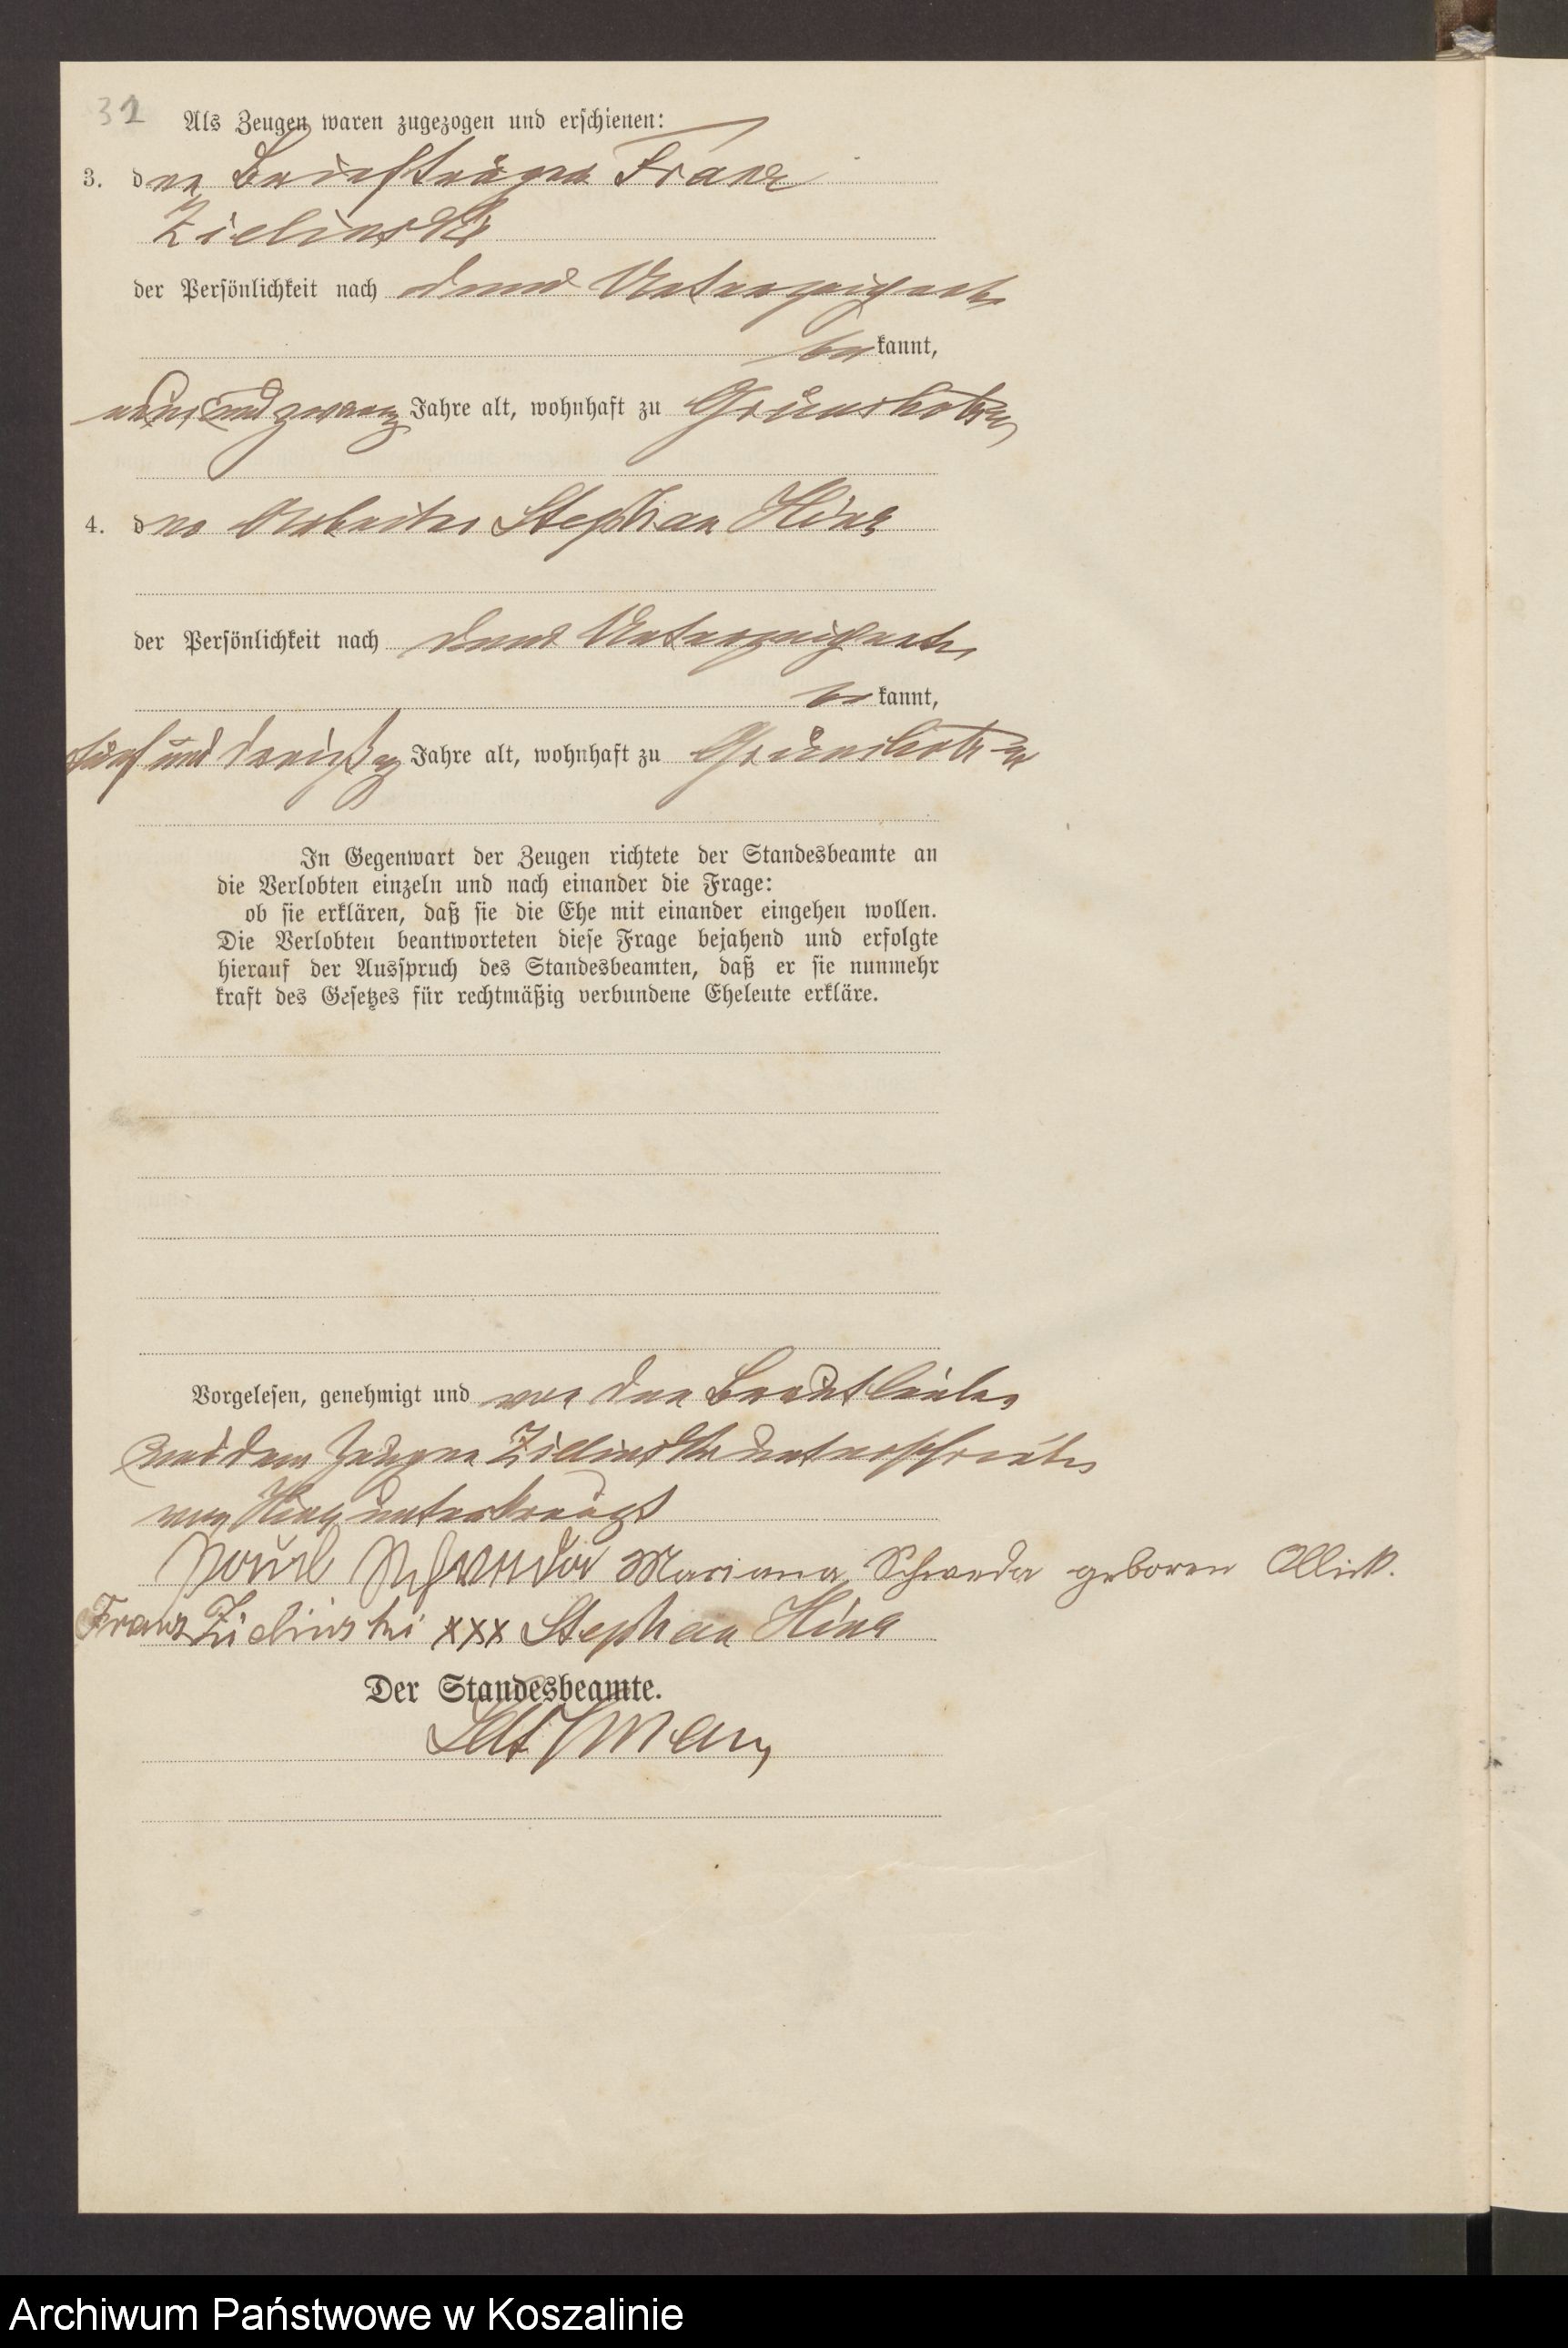 32 Als Zeugen waren zugezogen und erschienen:
3. der Briefträger Franz
Zielinski
der Persönlichkeit nach dem Unterzeichneten
bekannt,
neunundzwanzig Jahre alt, wohnhaft zu
4. der Arbeiter Stephan Hinz
der Persönlichkeit nach dem Unterzeichneten
bekannt,
fünf und dreißig Jahre alt, wohnhaft zu
In Gegenwart der Zeugen richtete der Standesbeamte an
die Verlobten einzeln und nach einander die Frage:
ob sie erklären, daß sie die Ehe mit einander eingehen wollen.
Die Verlobten beantworteten diese Frage bejahend und erfolgte
hierauf der Ausspruch des Standesbeamten, daß er sie nunmehr
kraft des Gesetzes für rechtmäßig verbundene Eheleute erkläre.
Vorgelesen, genehmigt und von den Brautleuten
und dem Zeugen Zielinski unterschrieben
von Hinz unterkreuzt
Paul Schweda Mariana Schweda geboren Ollick.
Franz Zielinski xxx Stephan Hinz
Der Standesbeamte.
Archiwum Państwowe w Koszalinie